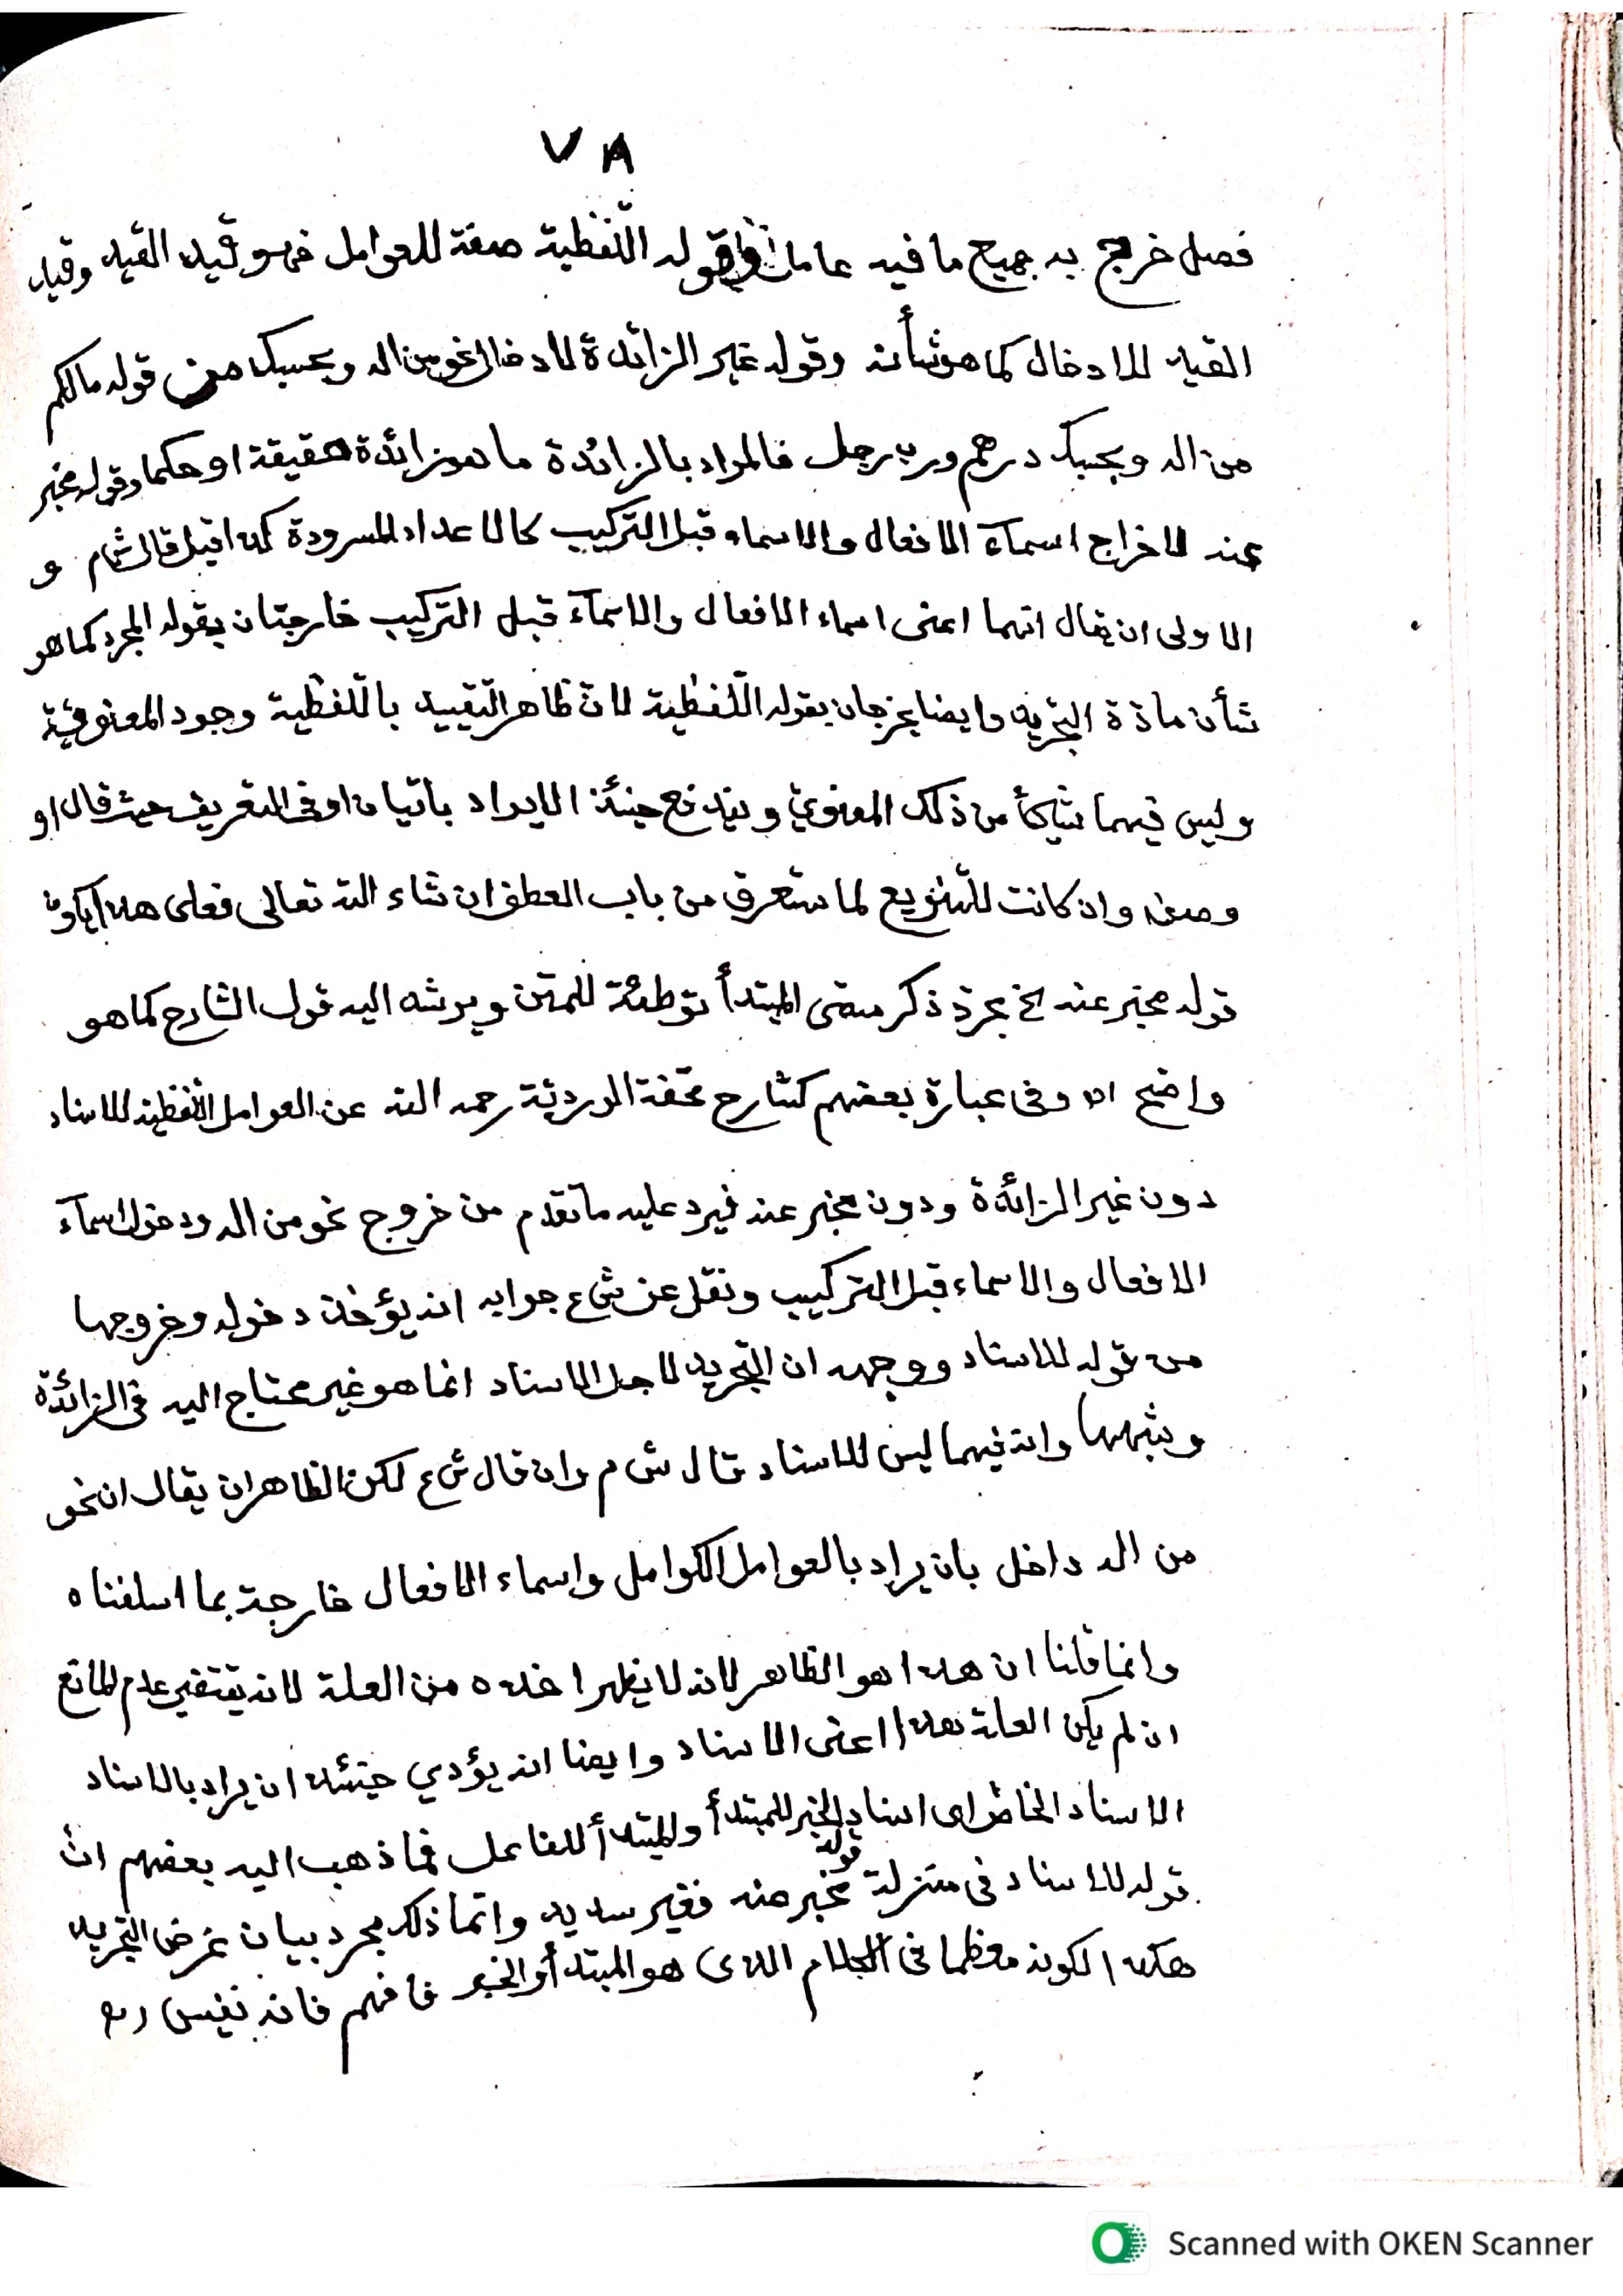 ٧٨
فصل خرج به جميع ما فيه عاملا وقوله اللّفظية صفة للعوامل فهو قيد القيد وقيد
القيد للادخال كما هو شأنه وقوله غير الزائدة لادخال نحو من اله وبحسبك من قوله مالكم
من اله وبحسبك درهم ورب رجل فالمراد بالزائدة ما هو زائدة حقيقة او حكما وقوله مخبر
عنه لاخراج اسمآء الافعال والاسماء قبل التركيب كالاعداد المسرودة كذا قيل قال ش م و
الاولى ان يقال انهما اعنى اسماء الافعال والاسمآء قبل التركيب خارجتان بقوله المجرد كما هو
شأن مادة التجريد وايضا يخرجان بقوله اللّفظية لانّ ظاهر التقييد باللّفظية وجود المعنوي فيه
وليس فيهما شيئاً من ذلك المعنويّ ويندفع حينئذ الايراد بأتيان او فى التعريف حيث قال او
وصف وان كانت للتّنويع لما ستعرف من باب العطف ان شاء الله تعالى فعلى هذا يكون
قوله مخبر عنه الخ بمجرد ذكر معنى المبتدأ توطئة للمتن ويرشد اليه قول الشارح كما هو
واضح اه وفى عبارة بعضهم كشارح تحفة الوردية رحمه الله عن العوامل اللّفظية للاسناد
دون غير الزائدة ودون مخبر عنه فيرد عليه ما تقدم من خروج نحو من اله ودخول اسمآء
الافعال والاسماء قبل التركيب ونقل عن ش ع جوابه انه يؤخذ دخوله وخروجها
من قوله للاسناد ووجهه ان التجريد لاجل الاسناد انما هو غير محتاج اليه فى الزائدة
وشبهها وانه فيهما ليس للاسناد قال ش م وان قال ش ع لكن الظاهر ان يقال ان نحو
من اله داخل بان يراد بالعوامل الكوامل واسماء الافعال خارجة بما اسلفناه
وانما قلنا ان هذا هو الظاهر لانه لا يظهر اخذه من العلة لانه يقتضي عدم المانع
ان لم يكن العلة هذا اعنى الاسناد وايضا انه يؤدي حينئذ ان يراد بالاسناد
الاسناد الخاص اى اسناد الخبر للمبتدأ والمبتدأ للفاعل فما ذهب اليه بعضهم انّ
قوله للاسناد فى منزلة قوله مخبر عنه فغير سديد وانّما ذلك مجرد بيان غرض التجريد
هكذا لكونه معظما فى الكلام الذى هو المبتدأ والخبر فافهم فانه نفيس
Scanned with OKEN Scanner